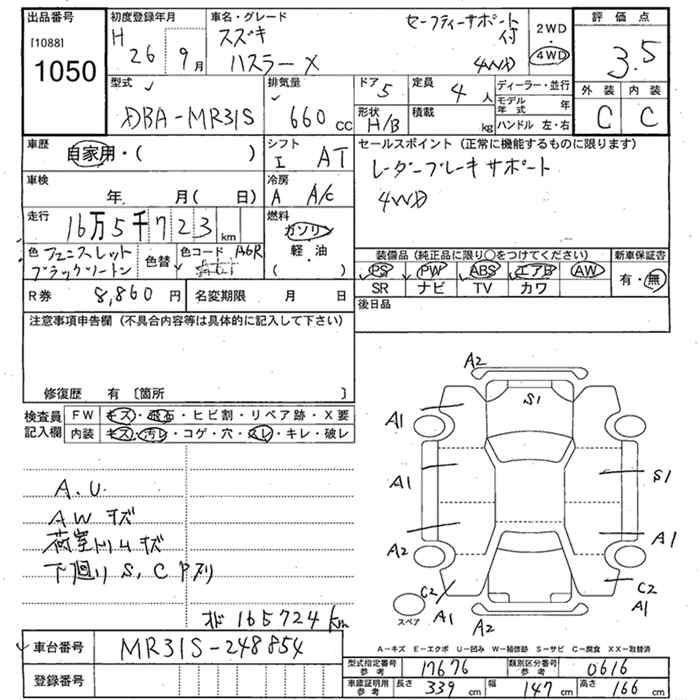 出品番号
[1088]
1050
初度登録年月
H 26 9月
車名・グレード
スズキ
ハスラーX
セーフティーサポート付
4WD
2WD
・
4WD
評価点
3.5
外装 内装
C C
型式
DBA-MR31S
排気量
660 cc
ドア 5
定員 4人
形状 H/B
積載 kg
ディーラー・並行
モデル年式 年
ハンドル 左・右
車歴
自家用・( )
シフト
I AT
セールスポイント(正常に機能するものに限ります)
レーダーブレーキサポート
4WD
車検
年 月( 日)
冷房
A A/C
走行
16万5千723km
燃料
ガソリン
軽・油
( )
色
フェニックスレッド
ブラックツートン
色替
色コード A6R
装備品(純正品に限り○をつけてください)
PS PW ABS エアB AW
SR ナビ TV カワ
新車保証書
有・無
R券 8,860円
名変期限 月 日
後日品
注意事項申告欄(不具合内容等は具体的に記入して下さい)
修復歴 有〔箇所 〕
検査員記入欄
FW キズ・飛石・ヒビ割・リペア跡・X要
内装 キズ・汚レ・コゲ・穴・スレ・キレ・破レ
A.U.
AW キズ
荷室トリムキズ
下廻り S,C Pヌリ
165724km
A2
S1
A1
A1
A2
C2
A1
A2
A1
S1
A1
C2
A1
スペア
A-キズ E-エクボ U-凹み W-補修跡 S-サビ C-腐食 XX-取替済
車台番号 MR31S-248854
登録番号
型式指定番号参考 17676
類別区分番号参考 0616
車庫証明用参考 長さ 339cm 幅 147cm 高さ 166cm